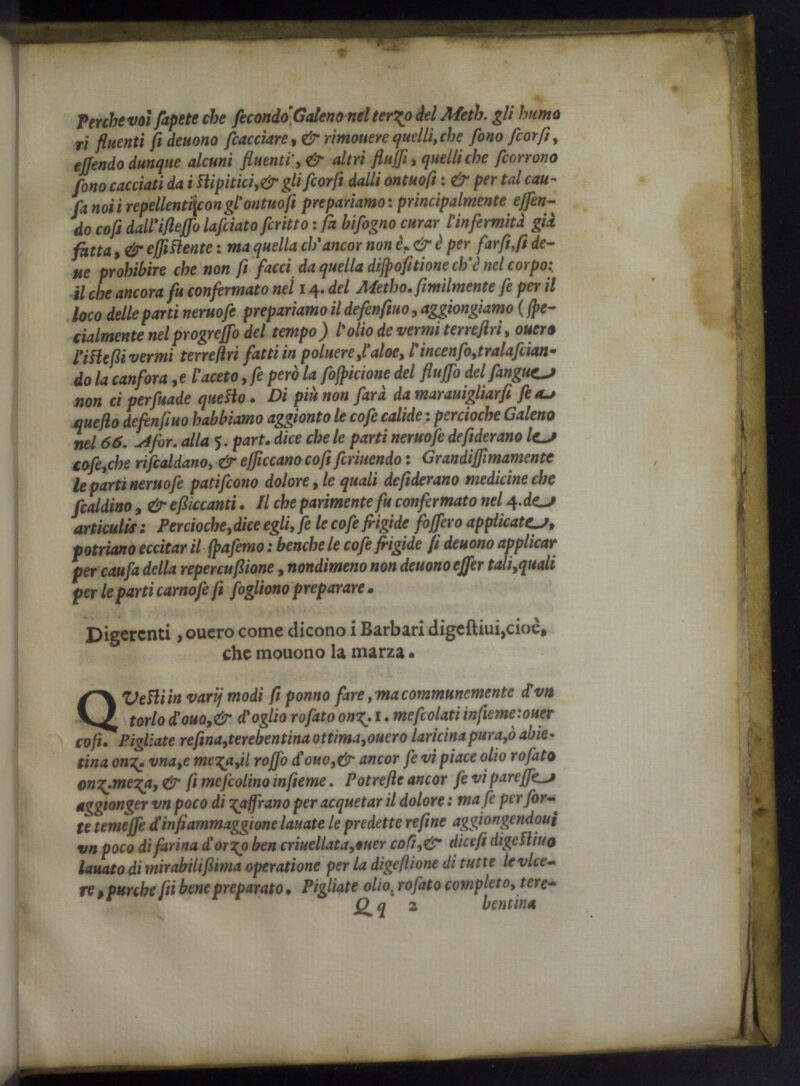 Perche voi sapete che secondo Galeno nel terzo del Meth. gli humo
ri fluenti si deuono scacciare, & rimouere quelli, che sono scorsi,
essendo dunque alcuni fluenti, & altri flussi, quelli che scorrono
sono cacciati da i stipitici, & gli scorsi dalli ontuosi: & per tal cau-
sa noi i repellenti con gl'ontuosi prepariamo: principalmente essen-
do cosi dall'istesso lasciato scritto: fa bisogno curar l'infermità già
fatta, & essistente: ma quella ch'ancor non è, & è per farsi, si de-
ue prohibire che non si facci da quella dispositione ch'è nel corpo:
il che ancora fu confermato nel 14. del Metho. similmente se per il
loco delle parti neruose prepariamo il defensiuo, aggiongiamo (spe-
cialmente nel progresso del tempo) l'olio de vermi terrestri, ouero
l'istessi vermi terrestri fatti in poluere, l'aloe, l'incenso, tralascian-
do la canfora, e l'aceto, se però la sospicione del flusso del sangue
non ci persuade questo. Di più non sarà da marauigliarsi se a
questo defensiuo habbiamo aggionto le cose calide: percioche Galeno
nel 66. Afor. alla 5. part. dice che le parti neruose desiderano le
cose, che riscaldano, & essiccano cosi scriuendo: Grandissimamente
le parti neruose patiscono dolore, le quali desiderano medicine che
scaldino, & essiccanti. Il che parimente fu confermato nel 4. de
articulis: Percioche, dice egli, se le cose frigide fossero applicate,
potriano eccitar il spasemo: benche le cose frigide si deuono applicar
per causa della repercussione, nondimeno non deuono esser tali, quali
per le parti carnose si sogliono preparare.
Digerenti, ouero come dicono i Barbari digestiui, cioè,
che mouono la marza.
QVesti in varij modi si ponno fare, ma communemente d'vn
torlo d'ouo, & d'oglio rosato onz. 1. mescolati insieme: ouer
cosi. Pigliate resina, terebentina ottima, ouero laricina pura, ò abie-
tina onz. vna, e meza, il rosso d'ouo, & ancor se vi piace olio rosato
onz. meza, & si mescolino insieme. Potreste ancor se vi paresse
aggionger vn poco di zaffrano per acquetar il dolore: ma se per sor-
te temesse d'infiammaggione lauate le predette resine aggiongendoui
vn poco di farina d'orzo ben criuellata, ouer cosi, & dicesi digestiuo
lauato di mirabilissima operatione per la digestione di tutte le vlce-
re, purche sii bene preparato. Pigliate olio rosato completo, tere-
Qq 2 bentina